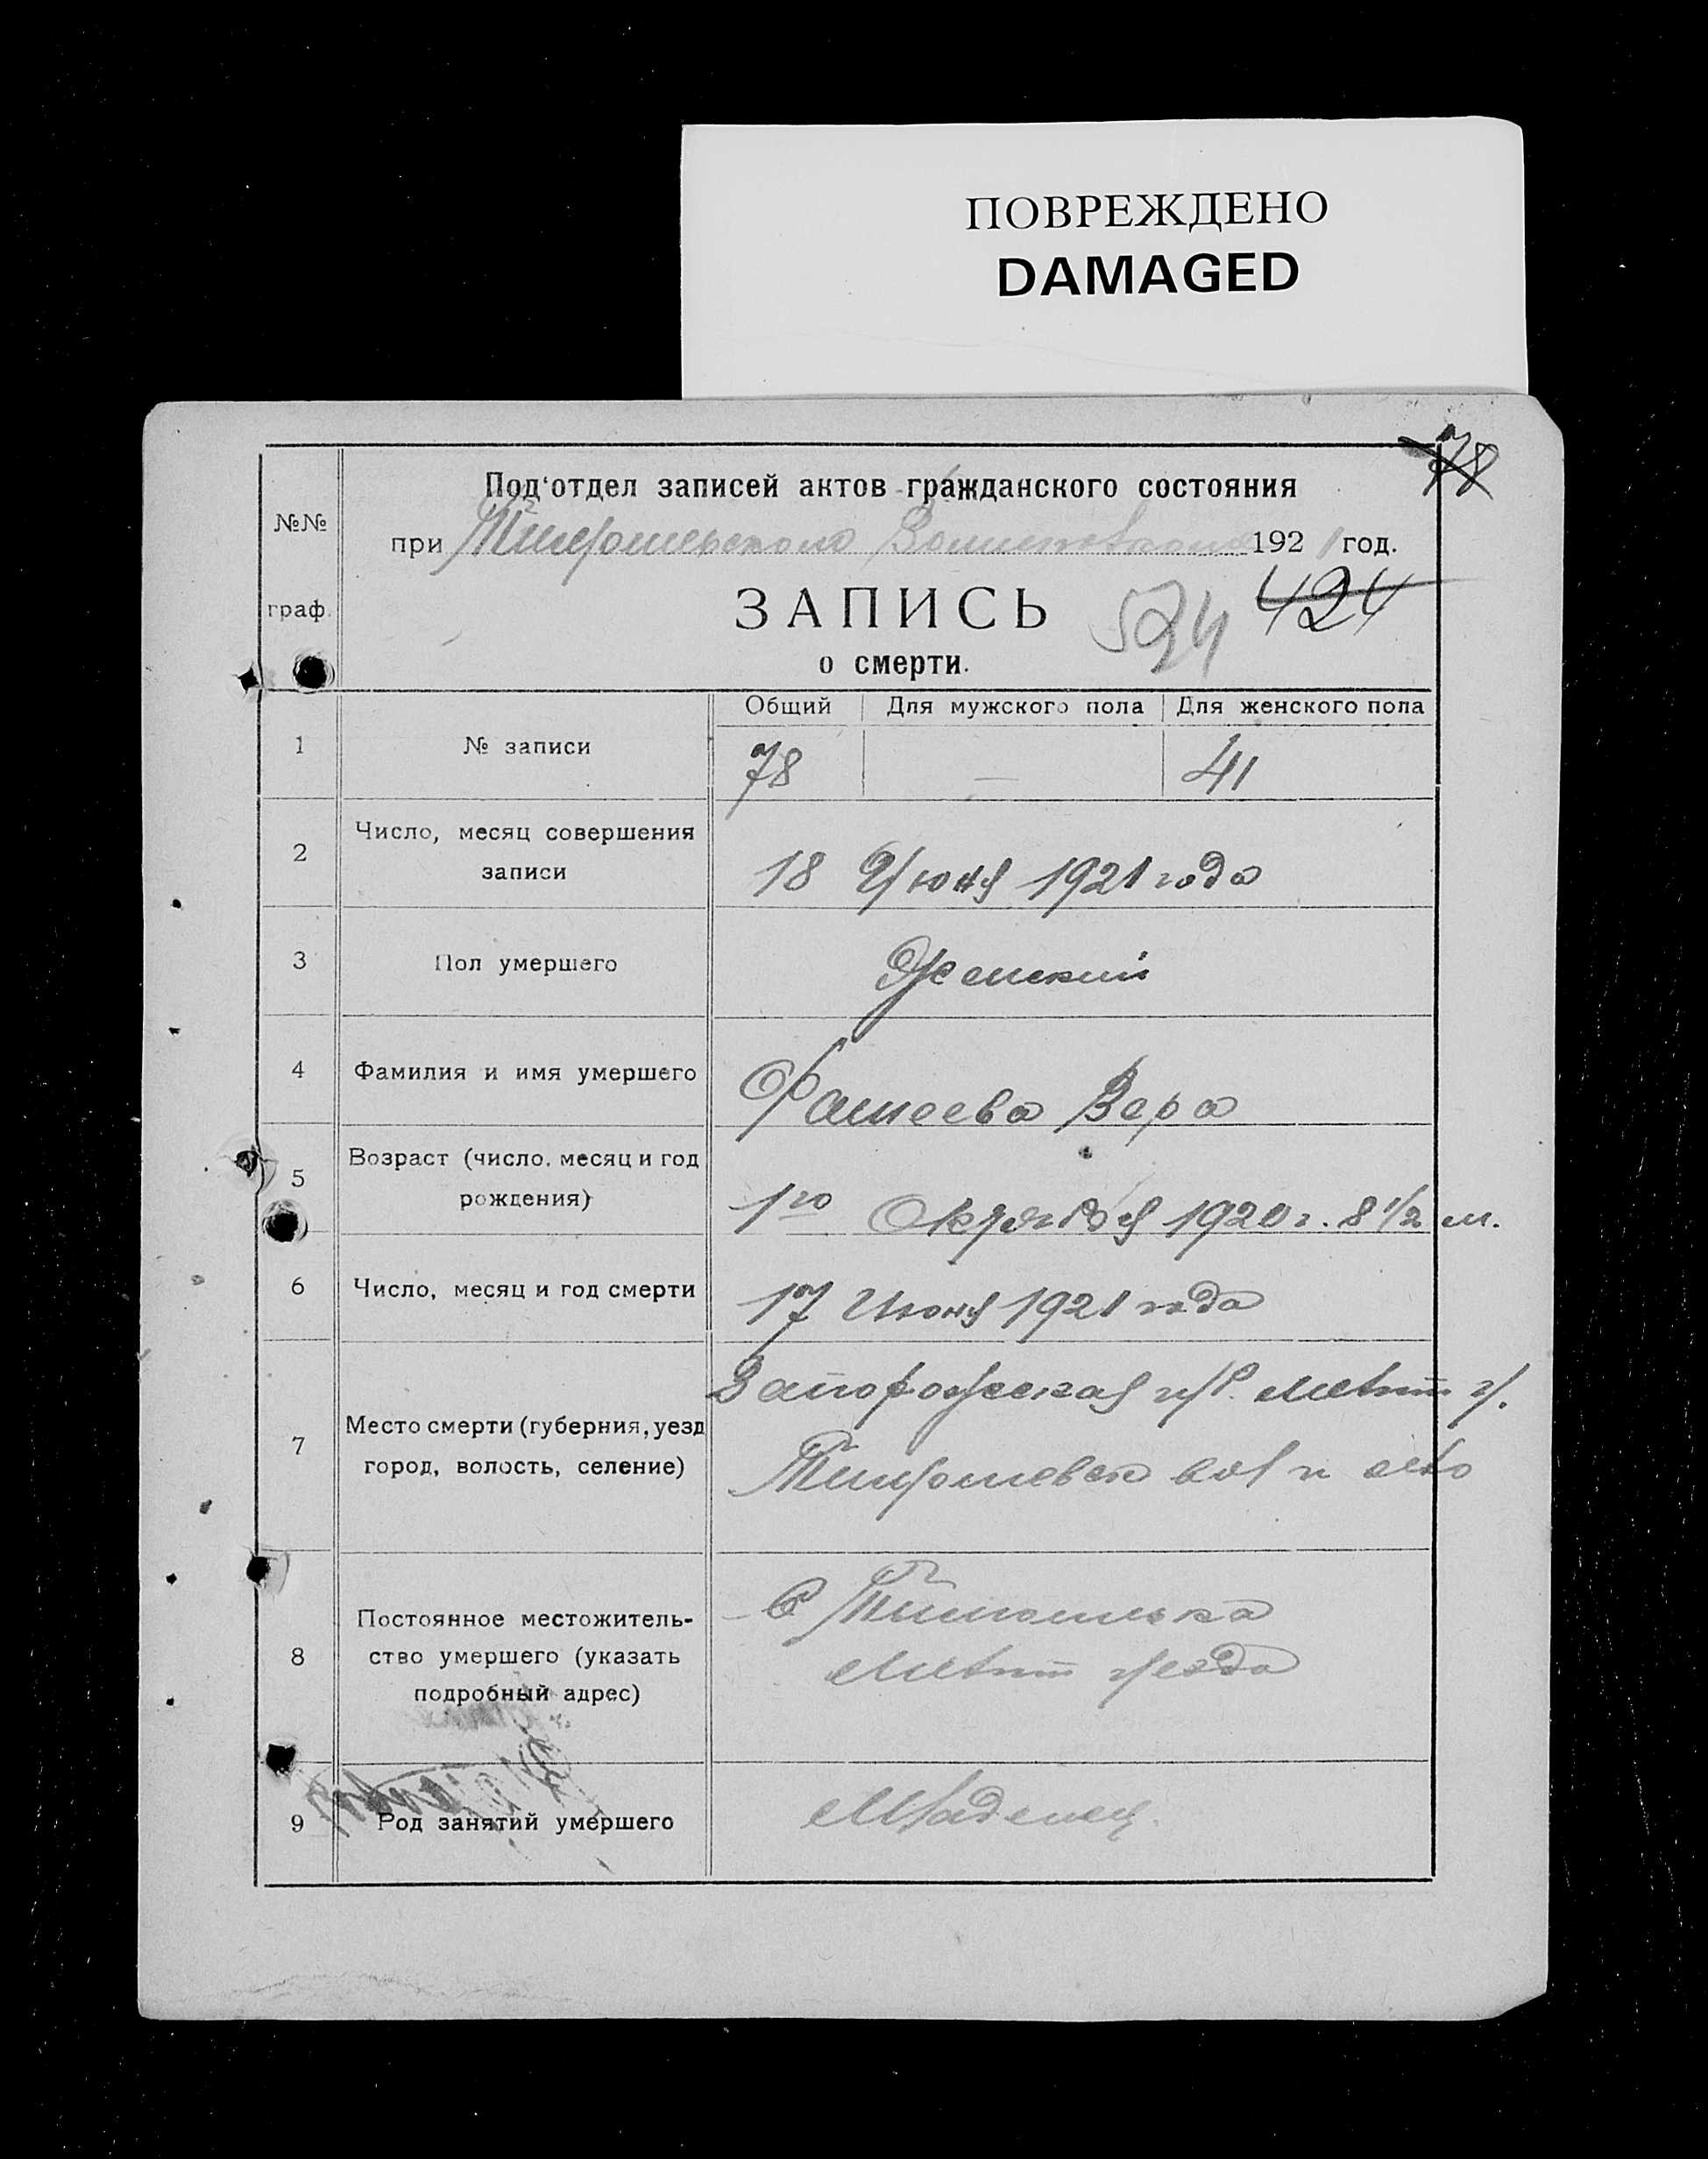 ПОВРЕЖДЕНО
DAMAGED
78
Под'отдел записей актов гражданского состояния
№№
при 1921 год.
граф.
ЗАПИСЬ 524 424
о смерти.
Общий Для мужского пола Для женского пола
1 № записи 78 — 41
2 Число, месяц совершения
записи
18 Июня 1921 года
3 Пол умершего Женский
4 Фамилия и имя умершего Фатеева Вера
5 Возраст (число, месяц и год
рождения)
1го Октября 1920 г. 8 1/2 м.
6 Число, месяц и год смерти 17 Июня 1921 года
7 Место смерти (губерния, уезд
город, волость, селение)
Запорожская г. Мелит у.
вол и село
8 Постоянное местожитель-
ство умершего (указать
подробный адрес)
С
Мелит уезда
9 Род занятий умершего Младенец.